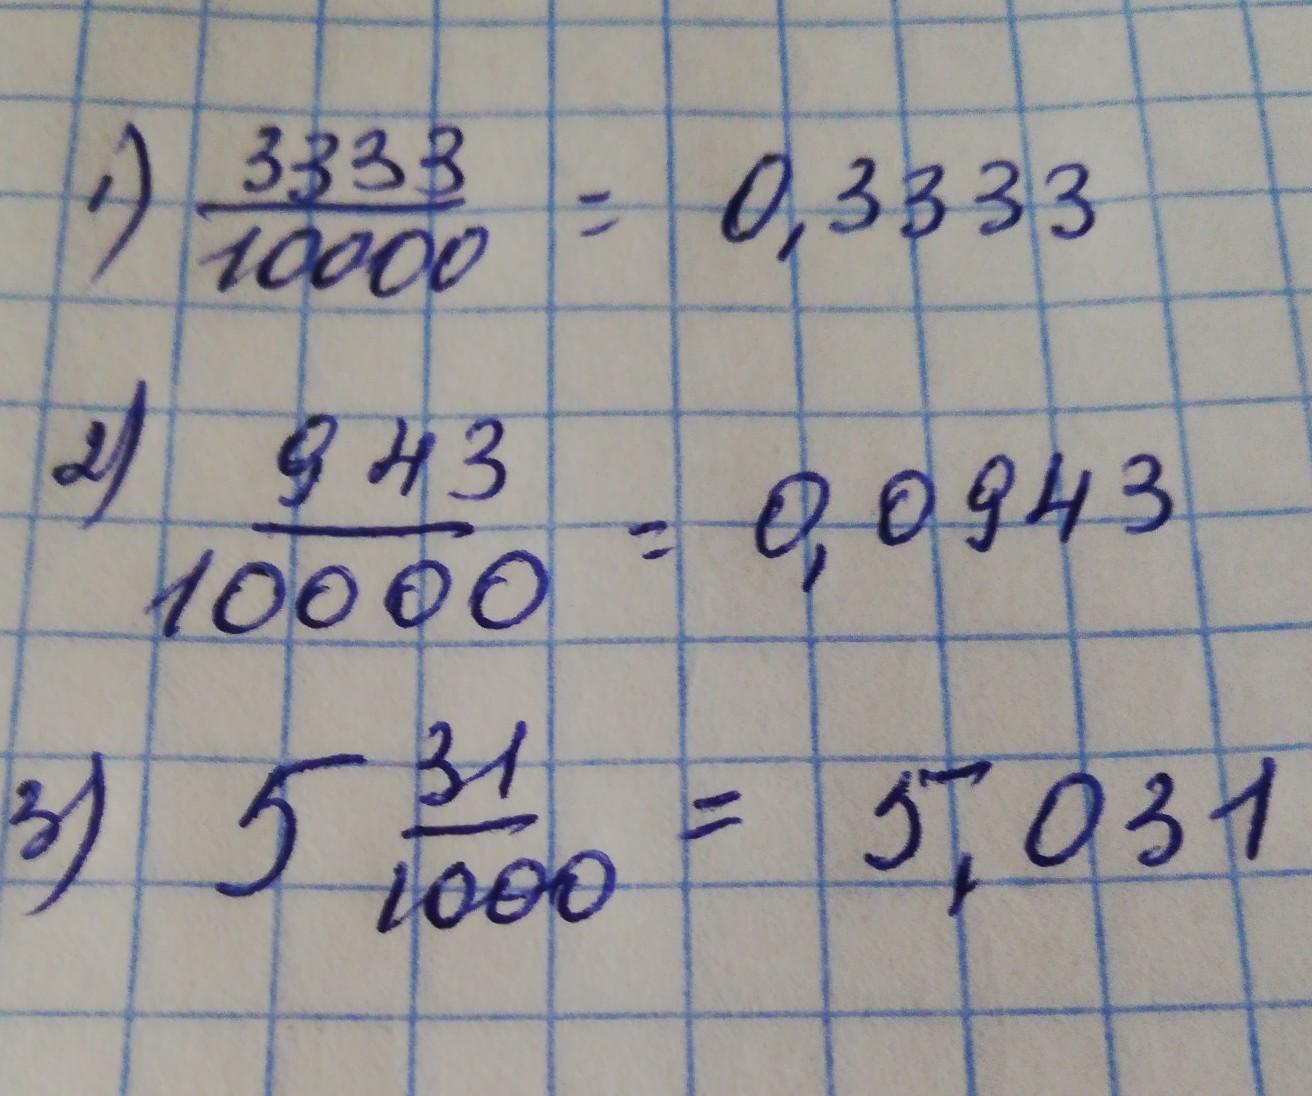 1) 3333/10000 = 0,3333
2) 943/10000 = 0,0943
3) 5 31/1000 = 5,031